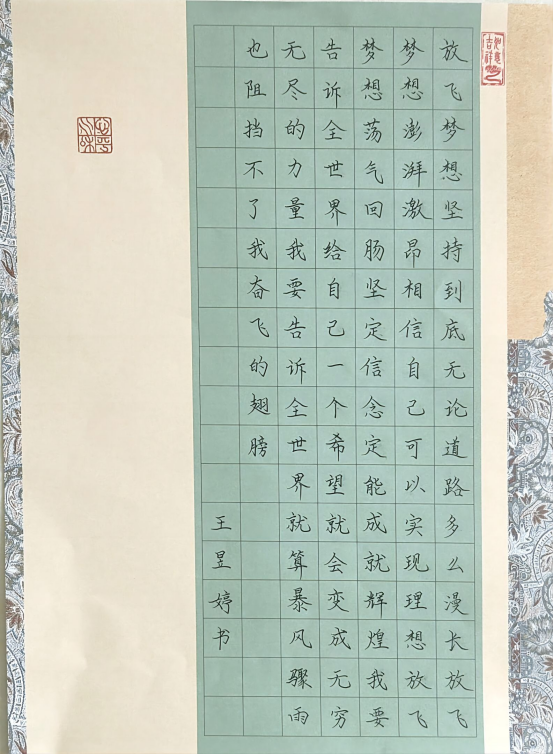 放飞梦想坚持到底无论道路多么漫长放飞
梦想澎湃激昂相信自己可以实现理想放飞
梦想荡气回肠坚定信念定能成就辉煌我要
告诉全世界给自己一个希望就会变成无穷
无尽的力量我要告诉全世界就算暴风骤雨
也阻挡不了我奋飞的翅膀
王昱婷书